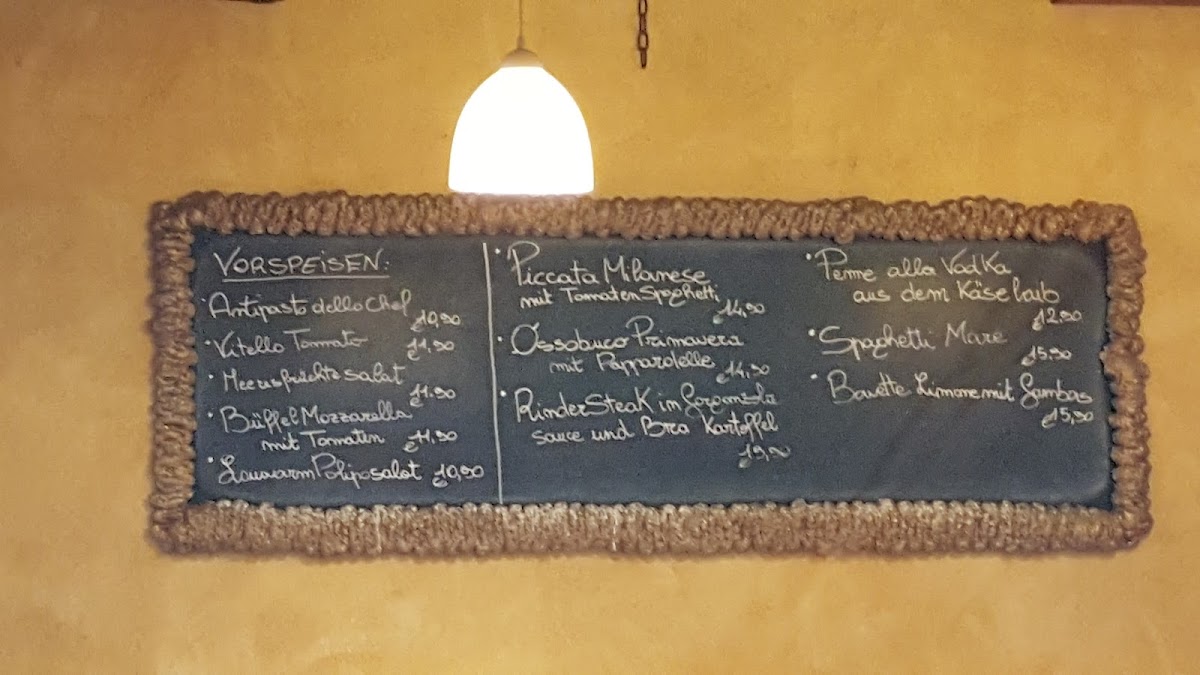 VORSPEISEN:
• Antipasto dello Chef
€10,90
• Vitello Tomato
€11,90
• Meeresfrüchte salat
€11.90
• Büffel Mozzarella
mit Tomaten €11,90
• Lauwarm Poliposalat €10,90
• Piccata Milanese
mit Tomaten Spaghetti
€14,90
• Ossobuco Primavera
mit Papparolelle €14,90
• Rinder Steak in Gorgonzola
sauce und Bra Kartoffel
€19,90
• Penne alla Vodka
aus dem Käse laib
€12.90
• Spaghetti Mare
€15,90
• Bavette Limone mit Gambas
€15,90